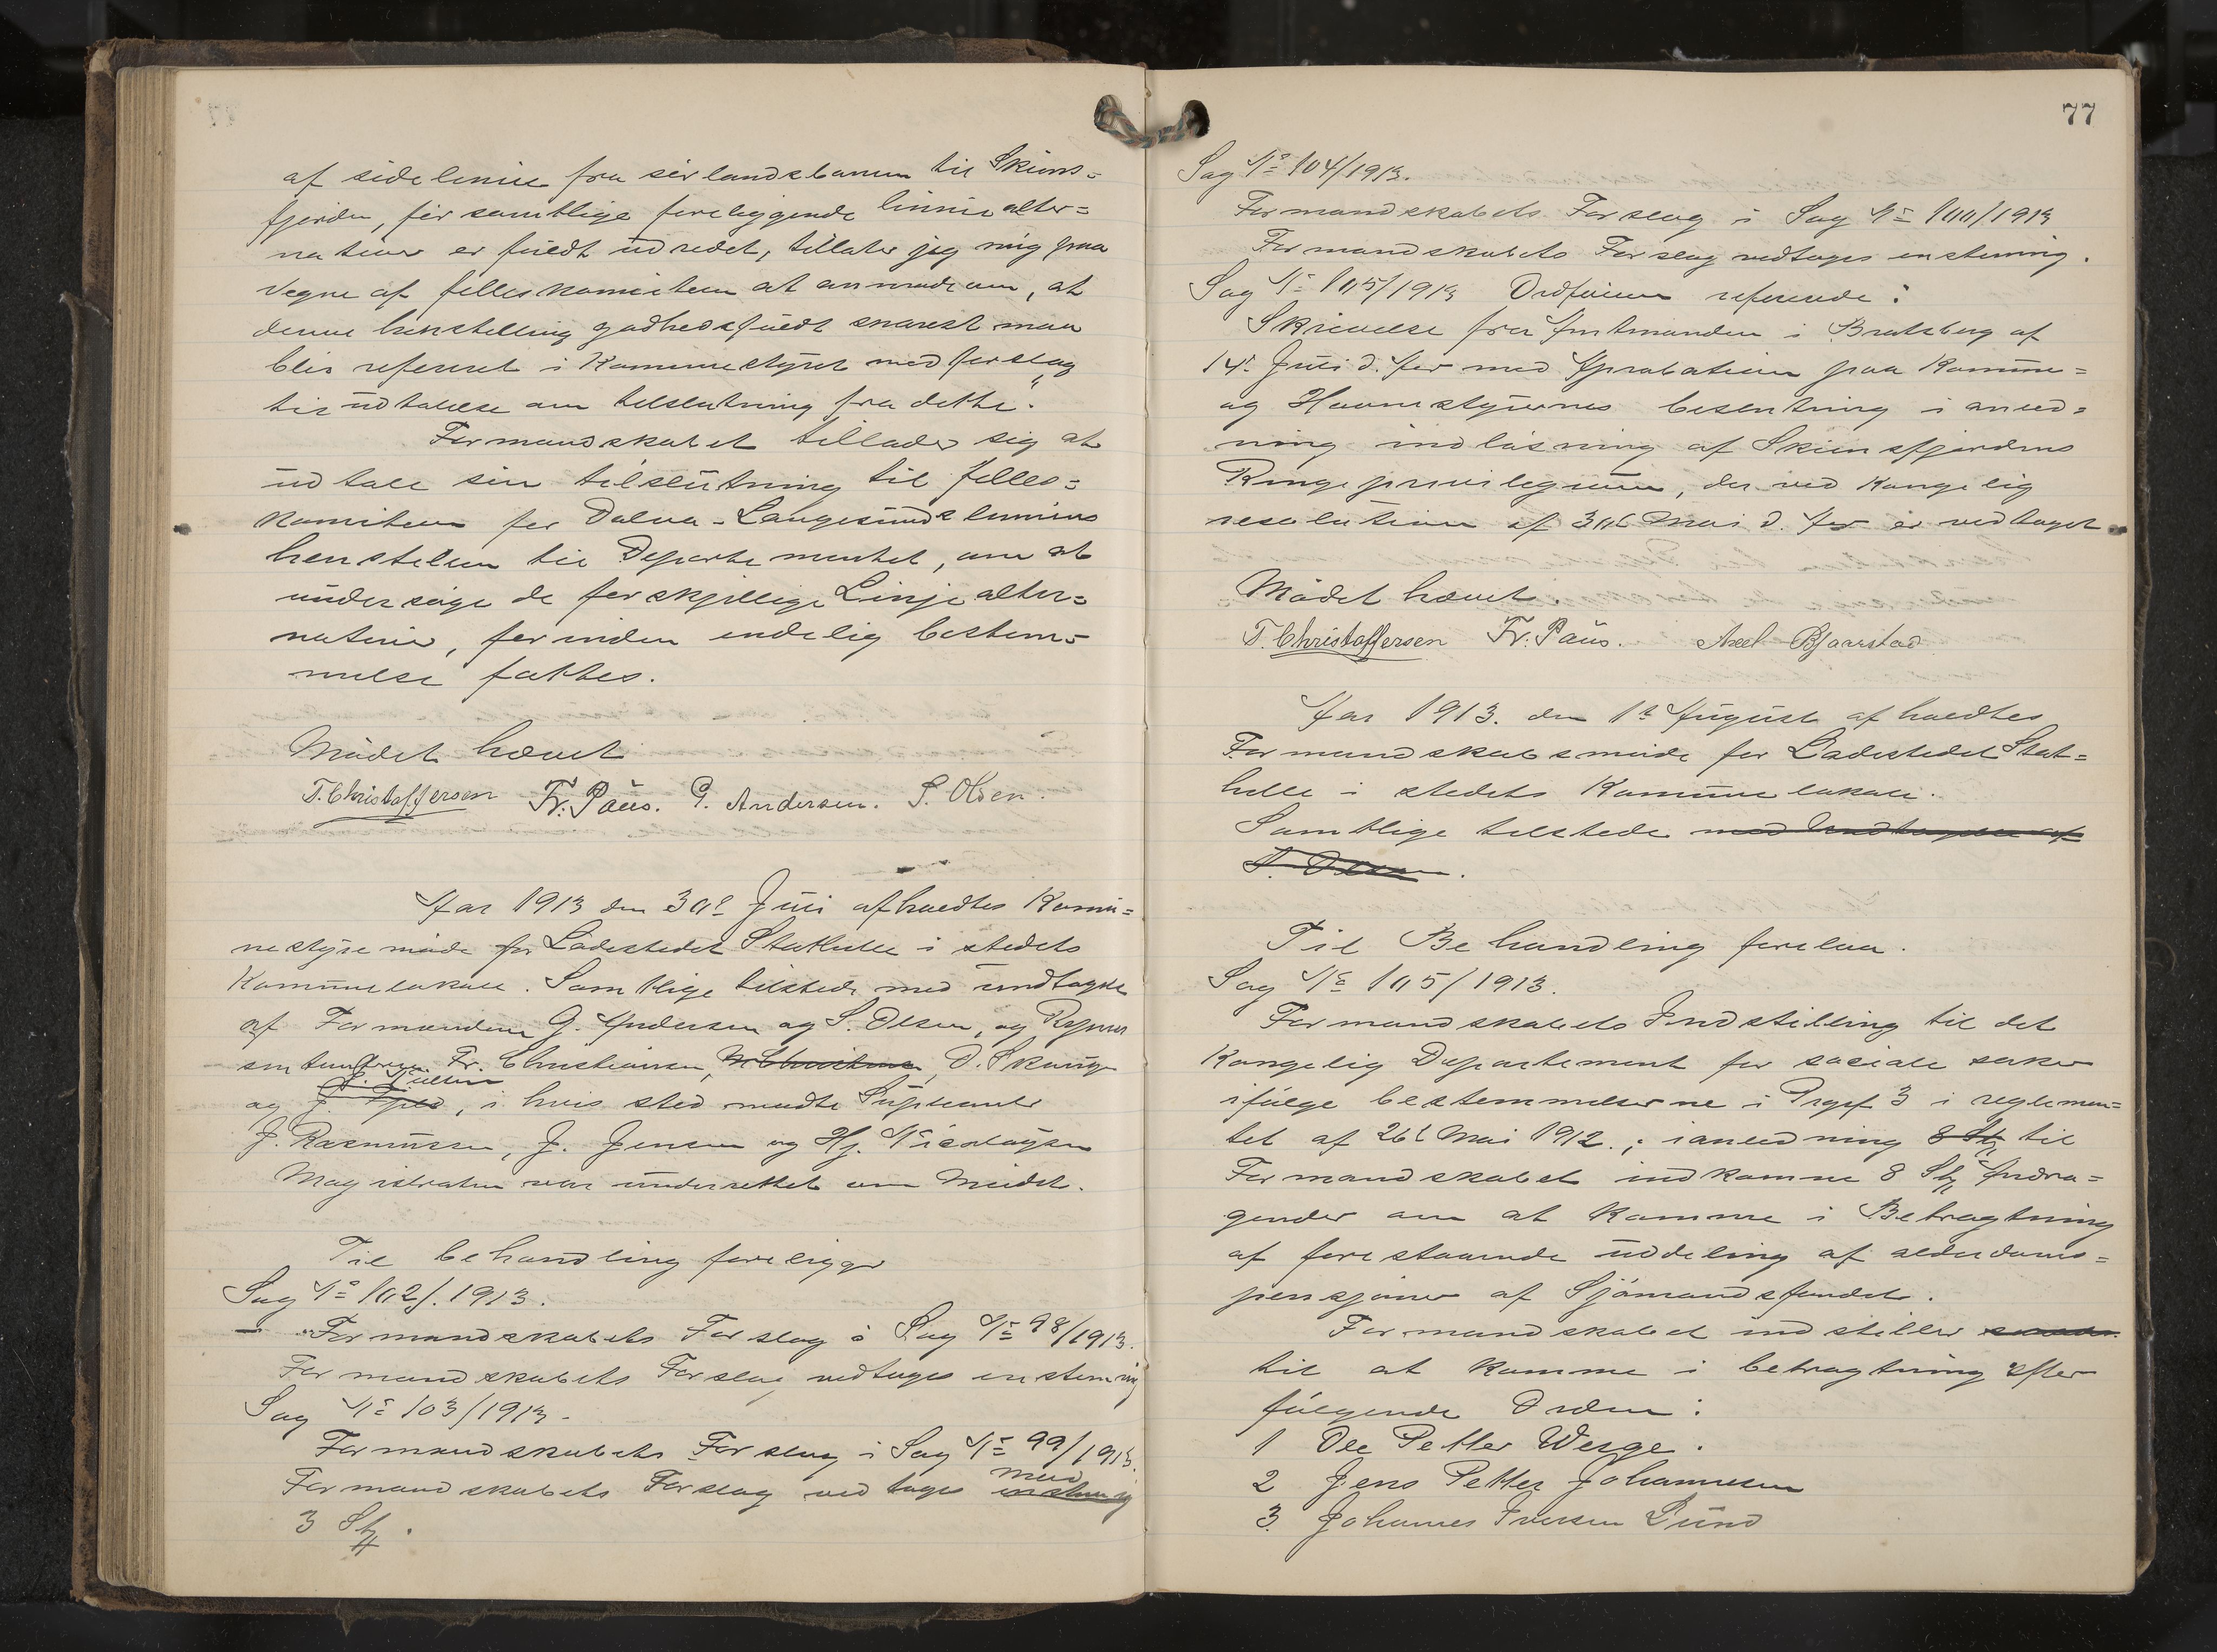 af sidelinie fra sørlandsbanen til Skiens-
fjorden, før samtlige foreliggende linniealter=
nativer er fuldt udredet, tillater jeg mig paa
Vegne af felleskomiteen at anmode om, at
denne henstilling godhedsfuldt snarest maa
bli refereret i Kommunestyret med forslag
til udtalelse om tilslutning fra dette."
Formandskabet tillader sig at
udtale sin tilslutning til felles=
komiteen for Dalva-Langesunds linniens
henstillen til Departementet, om at
undersøge de forskjellige Linjealter=
nativer, forinden endelig bestem=
melse fattes.
Mødet hævet
T. Christoffersen Fr. Paus. G. Andersen. S. Olsen.
Aar 1913 den 30te Juli afholdtes Komu=
nestyremøde for Ladestedet Stathelle i stedets
Kommunelokale. Samtlige tilstede med undtagelse
af Formændene G. Andersen og S. Olsen, og Repræ
sentanterne Fr. Christiansen, O. Skaug
og J. , i hvis sted mødte Suppleanter
J. Rasmussen, J. Jensen og Hj. Nicolaysen
Magistraten var underrettet om Mødet.
Til behandling foreligger
Sag No 102/1913.
- Formandskabets Forslag i Sag No 98/1913.
Formandskabets Forslag vedtages enstemmig
Sag No 103/1913.
Formandskabets Forslag i Sag No 99/1913.
med
Formandskabets Forslag vedtages enstemmig
3 St.
77
Sag No 104/1913.
Formandskabets Forslag i Sag No 100/1913
Formandskabets Forslag vedtages enstemmig.
Sag No 105/1913 Ordføreren refererede:
Skrivelse fra Amtmanden i Bratsberg af
14de Juli d. Aar med Aprobation paa Kommune=
og Havnestyrernes beslutning i anled=
ning indløsning af Skiensfjordens
Ringeprivilegium, der ved Kongelig
resolution af 30te Mai d. Aar er vedtaget
Mødet hævet.
T. Christoffersen Fr. Paus. Axel Bjaarstad
Aar 1913. den 1te August afholdtes
Formandskabsmøde for Ladestedet Stat=
helle i stedets Kommunelokale.
Samtlige tilstede med Undtagelse af
S. Olsen.
Til Behandling forelaa.
Sag No 105/1913.
Formandskabets Indstilling til det
Kongelig Departement for sociale saker
ifølge bestemmelserne i Prgrf 3 i reglemen=
tet af 26t Mai 1912.; ianledning 8 St. til
Formandskabet indkomne 8 St. Andra=
gender om at komme i Betragtning
af forestaaende uddeling af alderdoms=
pensjoner af Sjømandsfondet.
Formandskabet indstiller
til at komme i betragtning efter
følgende Orden:
1 Ole Petter Werge.
2 Jens Petter Johannesen
3. Johannes Iversen Lund